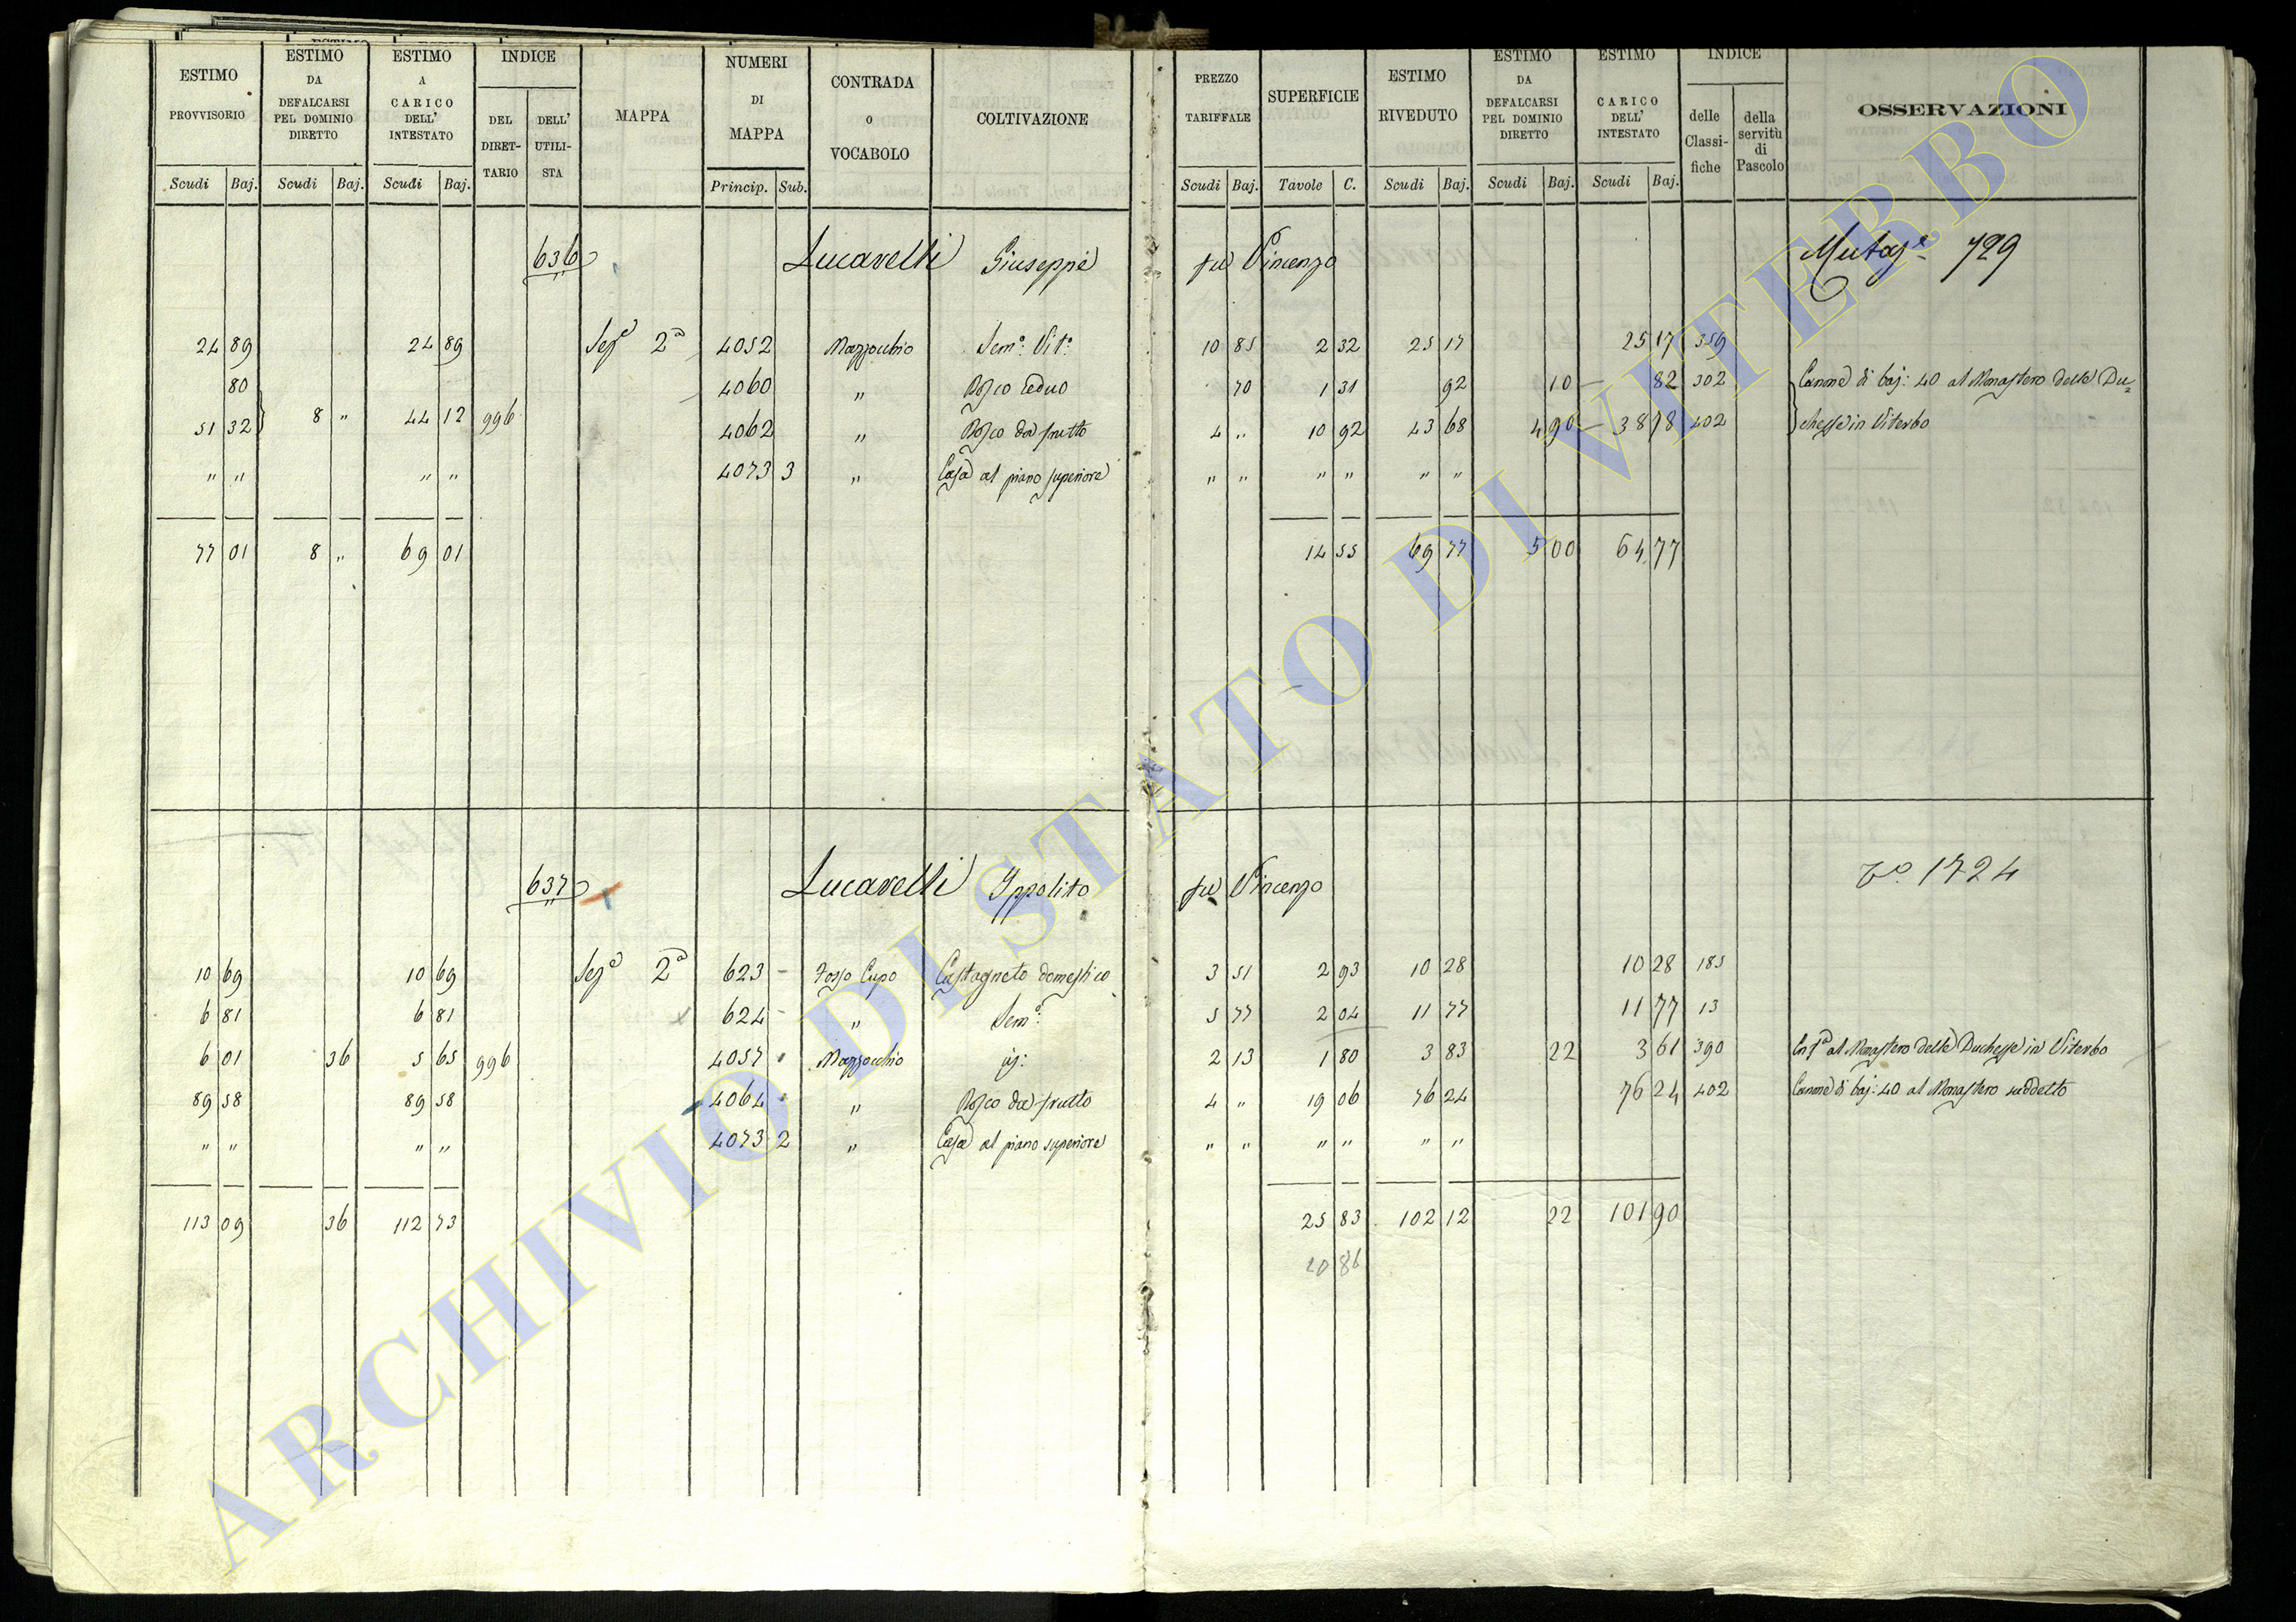 ESTIMO PROVVISORIO | ESTIMO DA DEFALCARSI PEL DOMINIO DIRETTO | ESTIMO A CARICO DELL' INTESTATO | INDICE DEL DIRET-TARIO | DELL' UTILI-STA | MAPPA | NUMERI DI MAPPA | CONTRADA O VOCABOLO | COLTIVAZIONE | PREZZO TARIFFALE | SUPERFICIE | ESTIMO RIVEDUTO | ESTIMO DA DEFALCARSI PEL DOMINIO DIRETTO | ESTIMO CARICO DELL' INTESTATO | INDICE delle Classi-fiche | della servitù di Pascolo | OSSERVAZIONI
Scudi Baj. Scudi Baj. Scudi Baj. Princip. Sub. Scudi Baj. Tavole C. Scudi Baj. Scudi Baj. Scudi Baj.
636 Lucarelli Giuseppe fu Vincenzo Mutaze 729
24 89 24 89 Seze 2a 4052 Mazzocchio Semo: Vito: 10 85 2 32 25 17 25 17 359
80 4060 " Bosco ceduo 70 1 31 92 10 — 82 302 Canone di baj: 40 al Monastero delle Du=
51 32 8 " 44 12 996 4062 " Bosco da frutto 4 " 10 92 43 68 4 90 — 38 78 402 chesse in Viterbo
" " " " 4073 3 " Casa al piano superiore " " " " " "
77 01 8 " 69 01 14 55 69 77 5 00 64 77
637 Lucarelli Ippolito fu Vincenzo 1724
10 69 10 69 Seze 2a 623 Fosso Cupo Castagneto domestico 3 51 2 93 10 28 10 28 185
6 81 6 81 624 " Semo: 5 77 2 04 11 77 11 77 13
6 01 36 5 65 996 4057 Mazzocchio 2 13 1 80 3 83 22 3 61 390 al Monastero delle Duchesse in Viterbo
89 58 89 58 4064 " Bosco da frutto 4 " 19 06 76 24 76 24 402 Canone di baj: 40 al Monastero suddetto
" " " " 4073 2 " Casa al piano superiore " " " " " "
113 09 36 112 73 25 83 102 12 22 101 90
86
ARCHIVIO DI STATO DI VITERBO